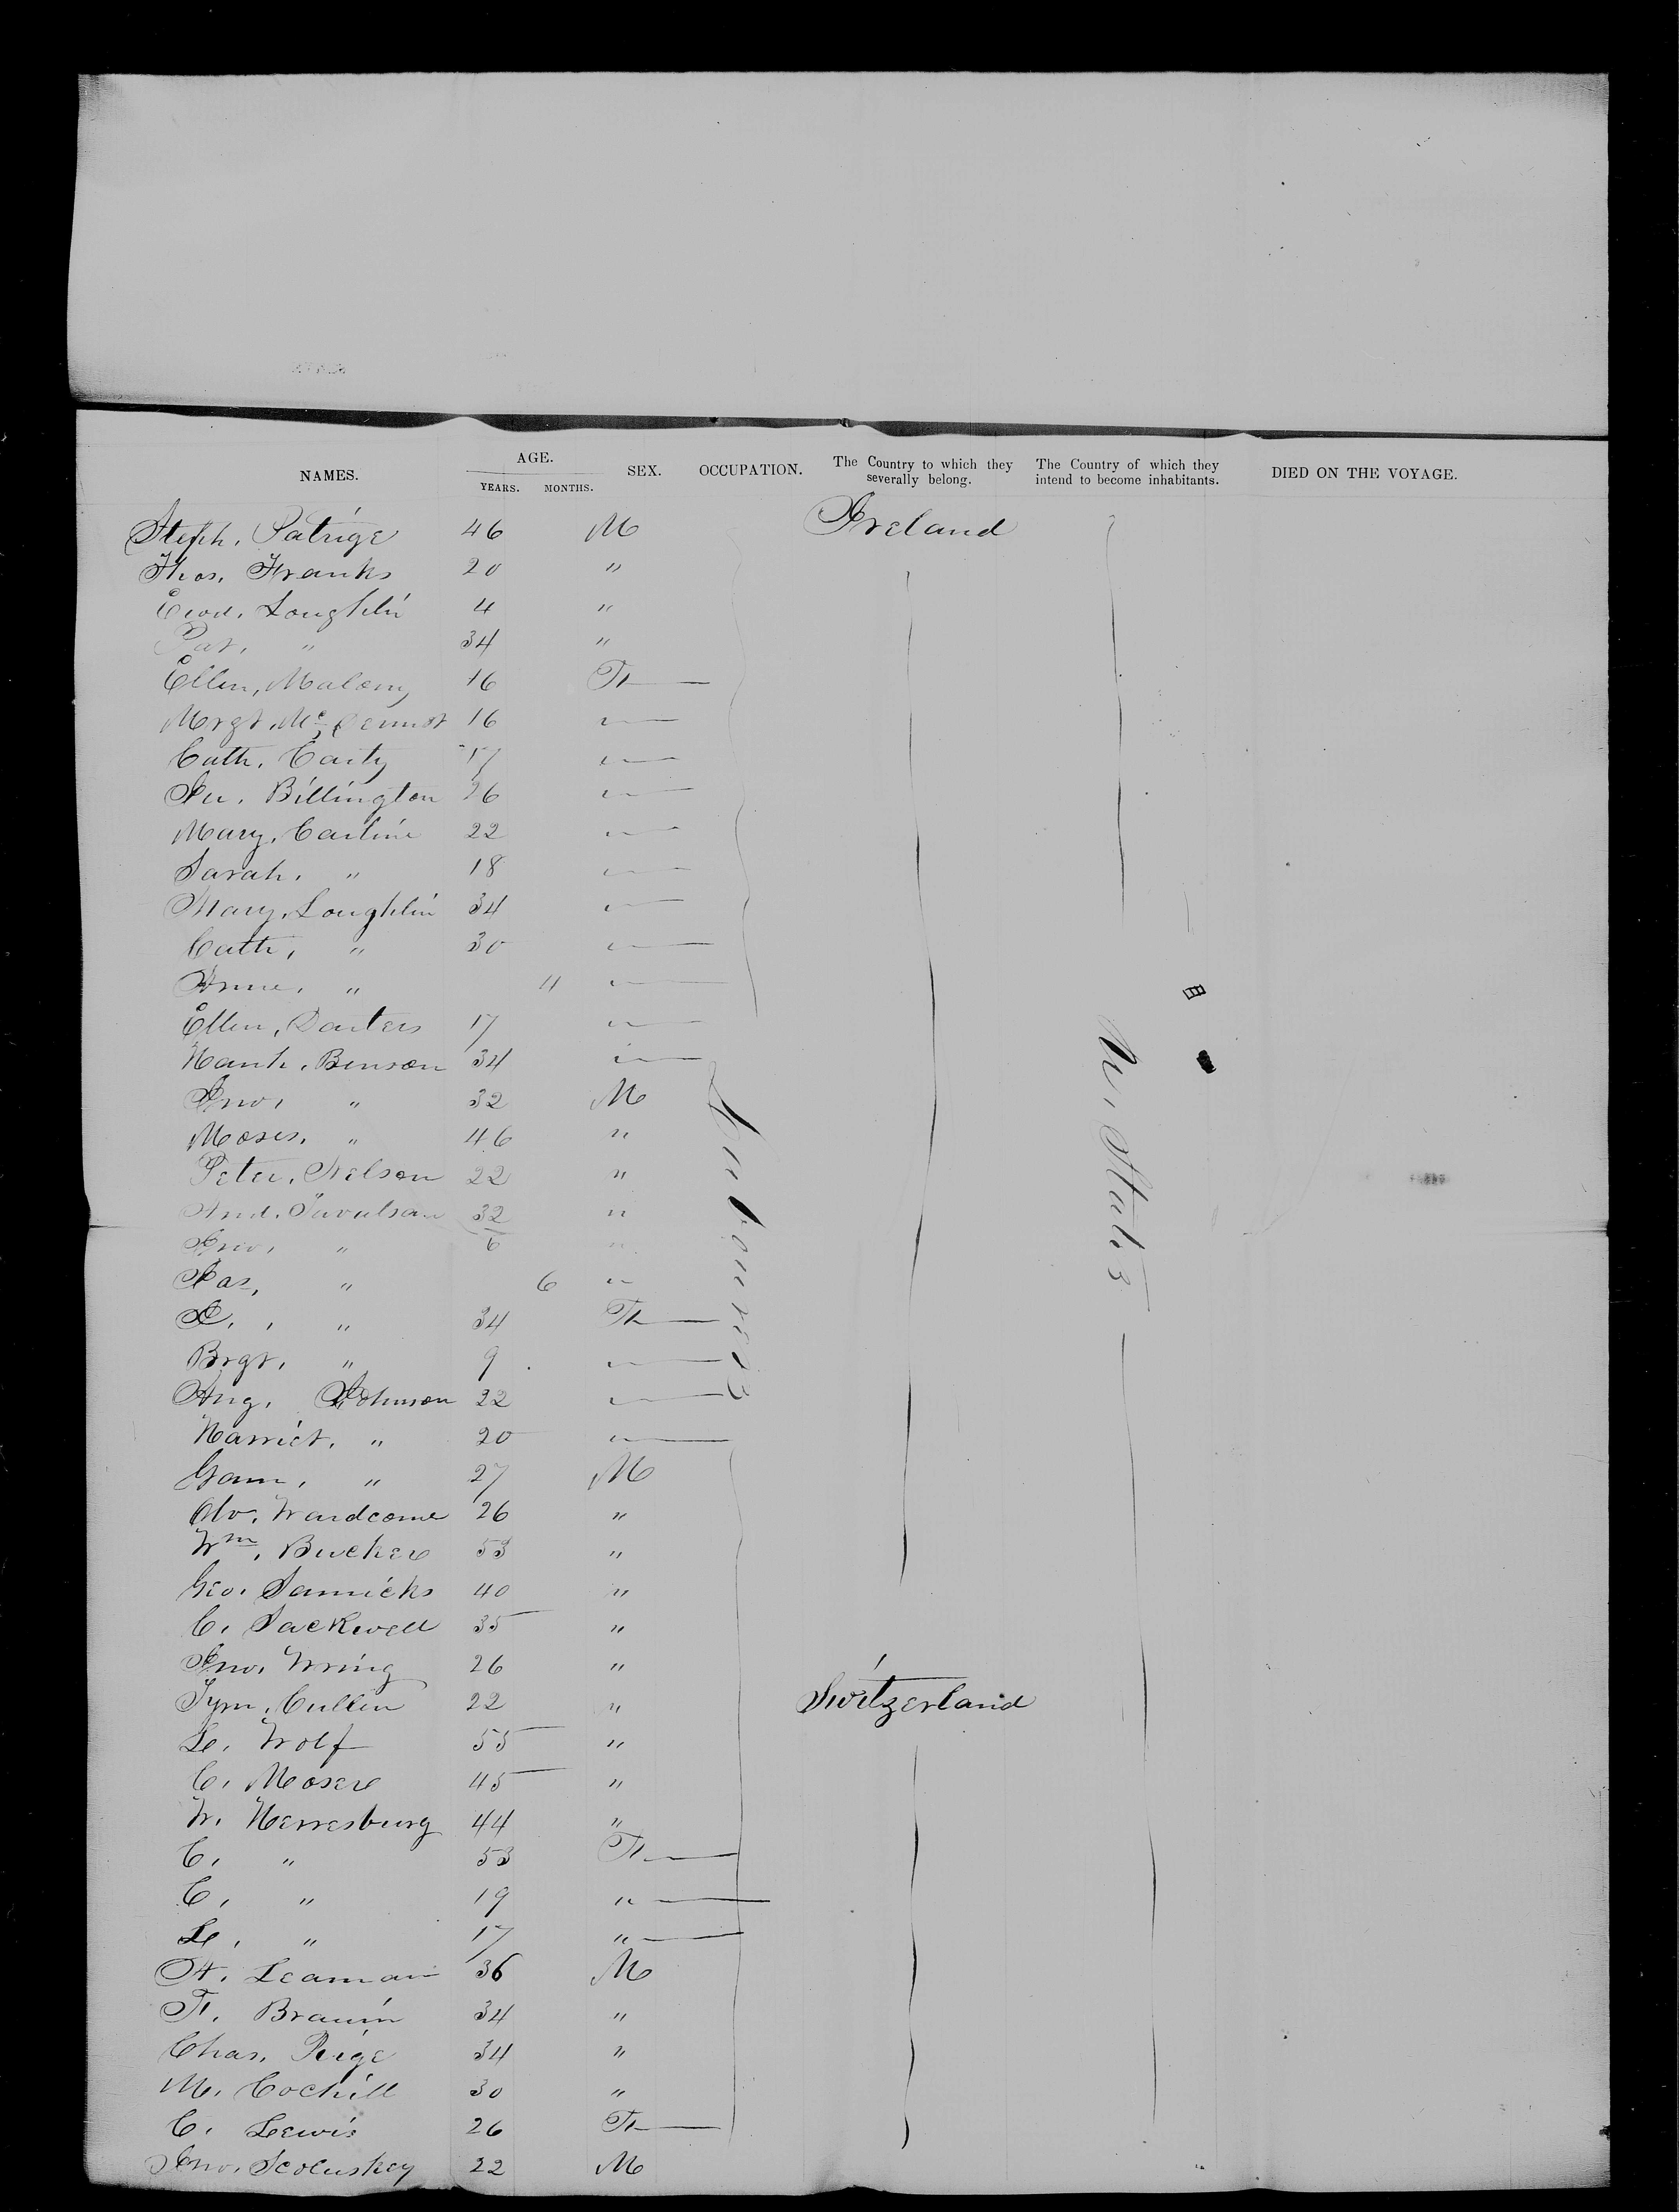 NAMES. AGE. YEARS. MONTHS. SEX. OCCUPATION. The Country to which they severally belong. The Country of which they intend to become inhabitants. DIED ON THE VOYAGE.
Steph. Patrige 46 M Ireland
Thos. Franks 20 "
Edwd. Loughlin 4 "
Pat. " 34 "
Ellen, Malony 16 F
Mrgt. Mc Dermot 16 "
Cath. Carty 17 "
Billington 26 "
Mary. Carline 22 "
Sarah. " 18 "
Mary. Loughlin 34 "
Cath. " 30 "
Anne. " 11 "
Ellen, 17 "
Hanh. Benson 34 "
Jno. " 32 M
Moses. " 46 "
Peter. Nelson 22 "
And. 32 "
Jno. " 6 "
Jas. " 6 "
" 34 F
Brgt. " 9 "
Aug. Johnson 22 "
Harriet. " 20 "
" 27 M
26 "
Wm. Bucker 53 "
Geo. 40 "
C. Sackwell 35 "
Jno. Wring 26 "
Tym. Cullin 22 " Switzerland
Wolf 55 "
C. Moser 45 "
W. Herresburg 44 "
C. " 53 F
C. " 19 "
" 17 "
Leaman 36 M
F. 34 "
Chas. Peige 34 "
M. Cochill 30 "
C. Lewis 26 F
Jno. 22 M
Labourers
Un. States